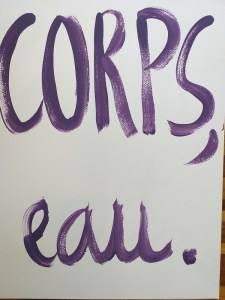 CORPS,
eau.